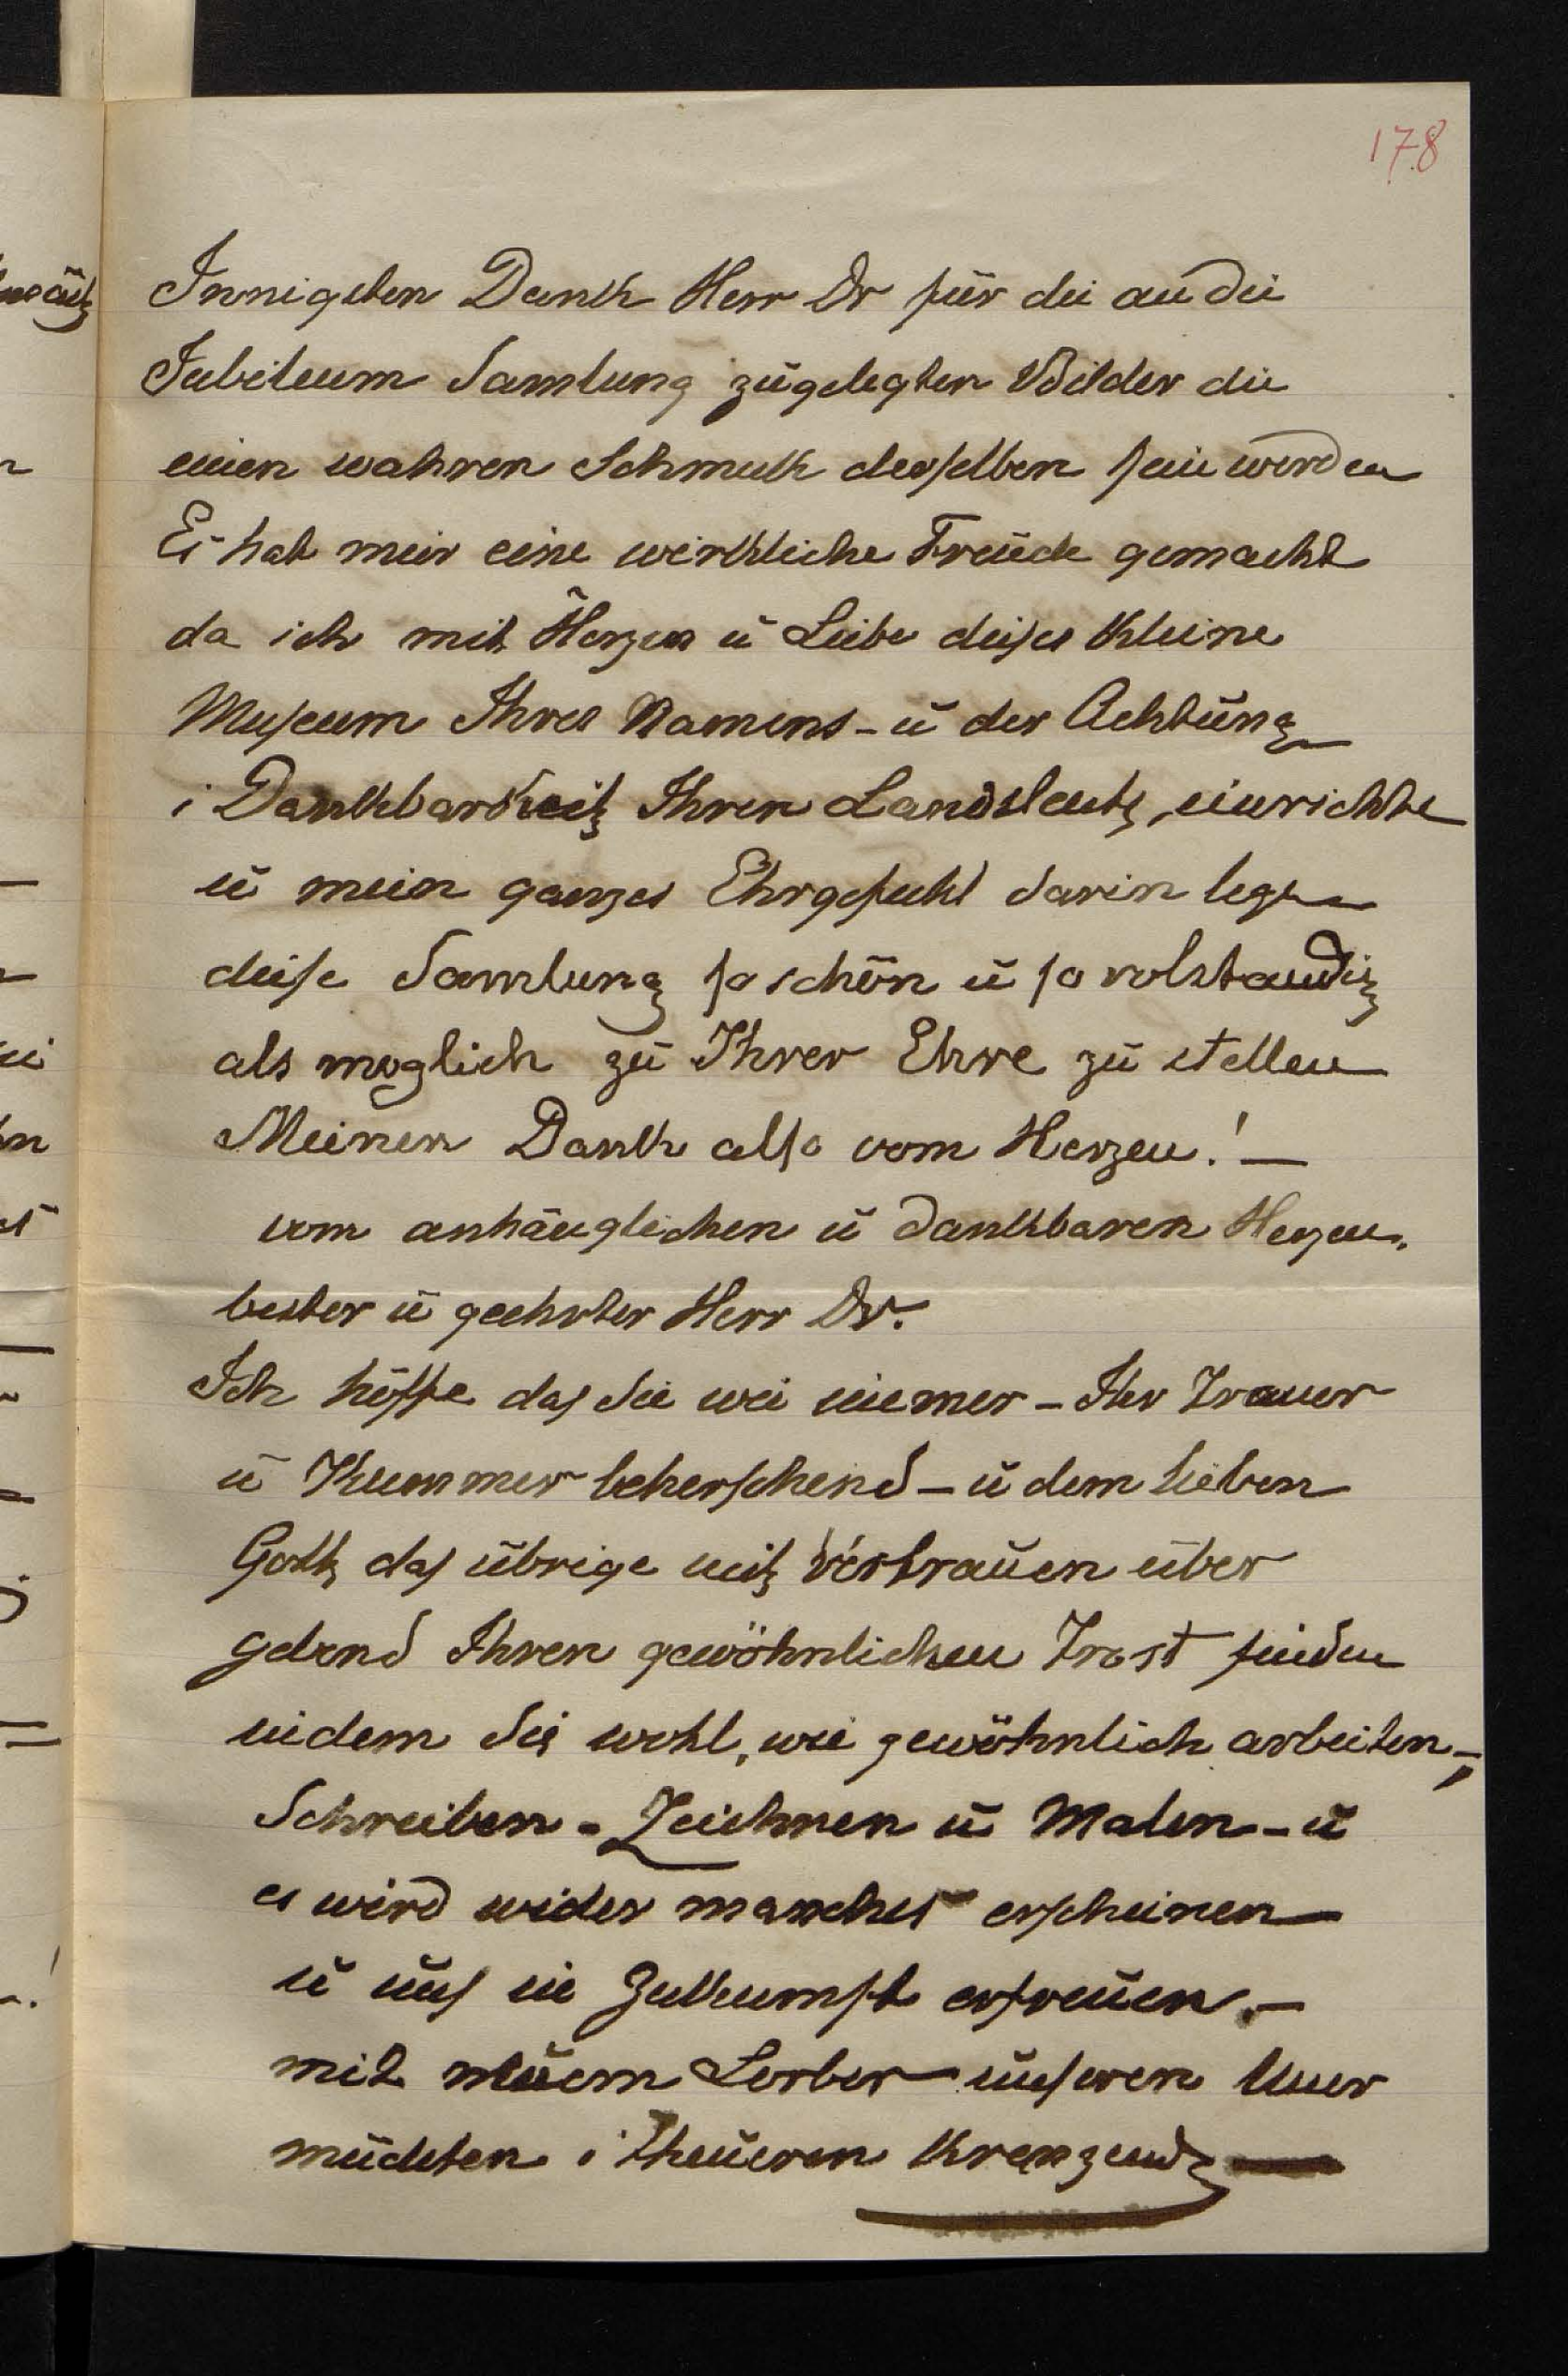 178
Innigsten Dankh Herr Dr für die an die
Jubileum Samlung zugelegten Bilder die
einen wahren Schmukh derselben sein werden
Es hat mir eine wirkhliche Freude gemacht
da ich mit Herzen u Liebe dises Kleine
Museum Ihres Namens - u der Achtung
i Dankhbarkeit Ihren Landsleute, einrichte
u mein ganzes Ehrgefuhl darin lege
dise Samlung so schön u so volstandig
als moglich zu Ihrer Ehre zu stellen
Meinen Dankh also vom Herzen! —
vom anhänglichen u dankhbaren Herzen.
bester u geehrter Herr Dr.
Ich hoffe das Sie wie immer - Ihr Trauer
u Khummer beherschend - u dem lieben
Gott das übrige mit Vertrauen über
gebend Ihren gewöhnlichen Trost finden
indem Sie wohl, wie gewöhnlich arbeiten -,
Schreiben - Zeichnen u Malen - u
es wird wider manches erscheinen
u uns in Zukhumft erfreuen. -
mit neuem Lorber unseren Uner
müdeten i theueren Krenzend —